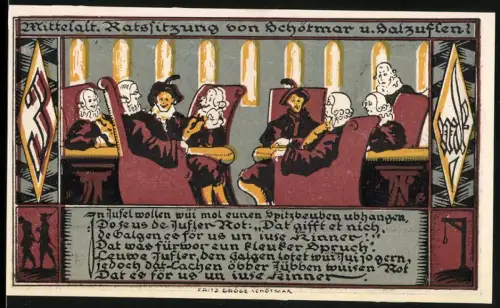 Mittelalt. Ratssitzung von Schötmar u. Salzuflen!
In Jufel wollen wüi mol eunen Spitzbeuben ubhangen,
Do seus de Jufler Rot: „Dat gifft et nich,
De Galgen es för us un iuse Kinner!"
Dat was fürwor eun kleuker Spruch!
Leuwe Jufler, den Galgen lotet wüi Jui jo gern,
jedoch dat Lachen öbber Jübben wuisen Rot
Dat es för us un iuse Kinner!
FRITZ GROSE SCHÖTMAR